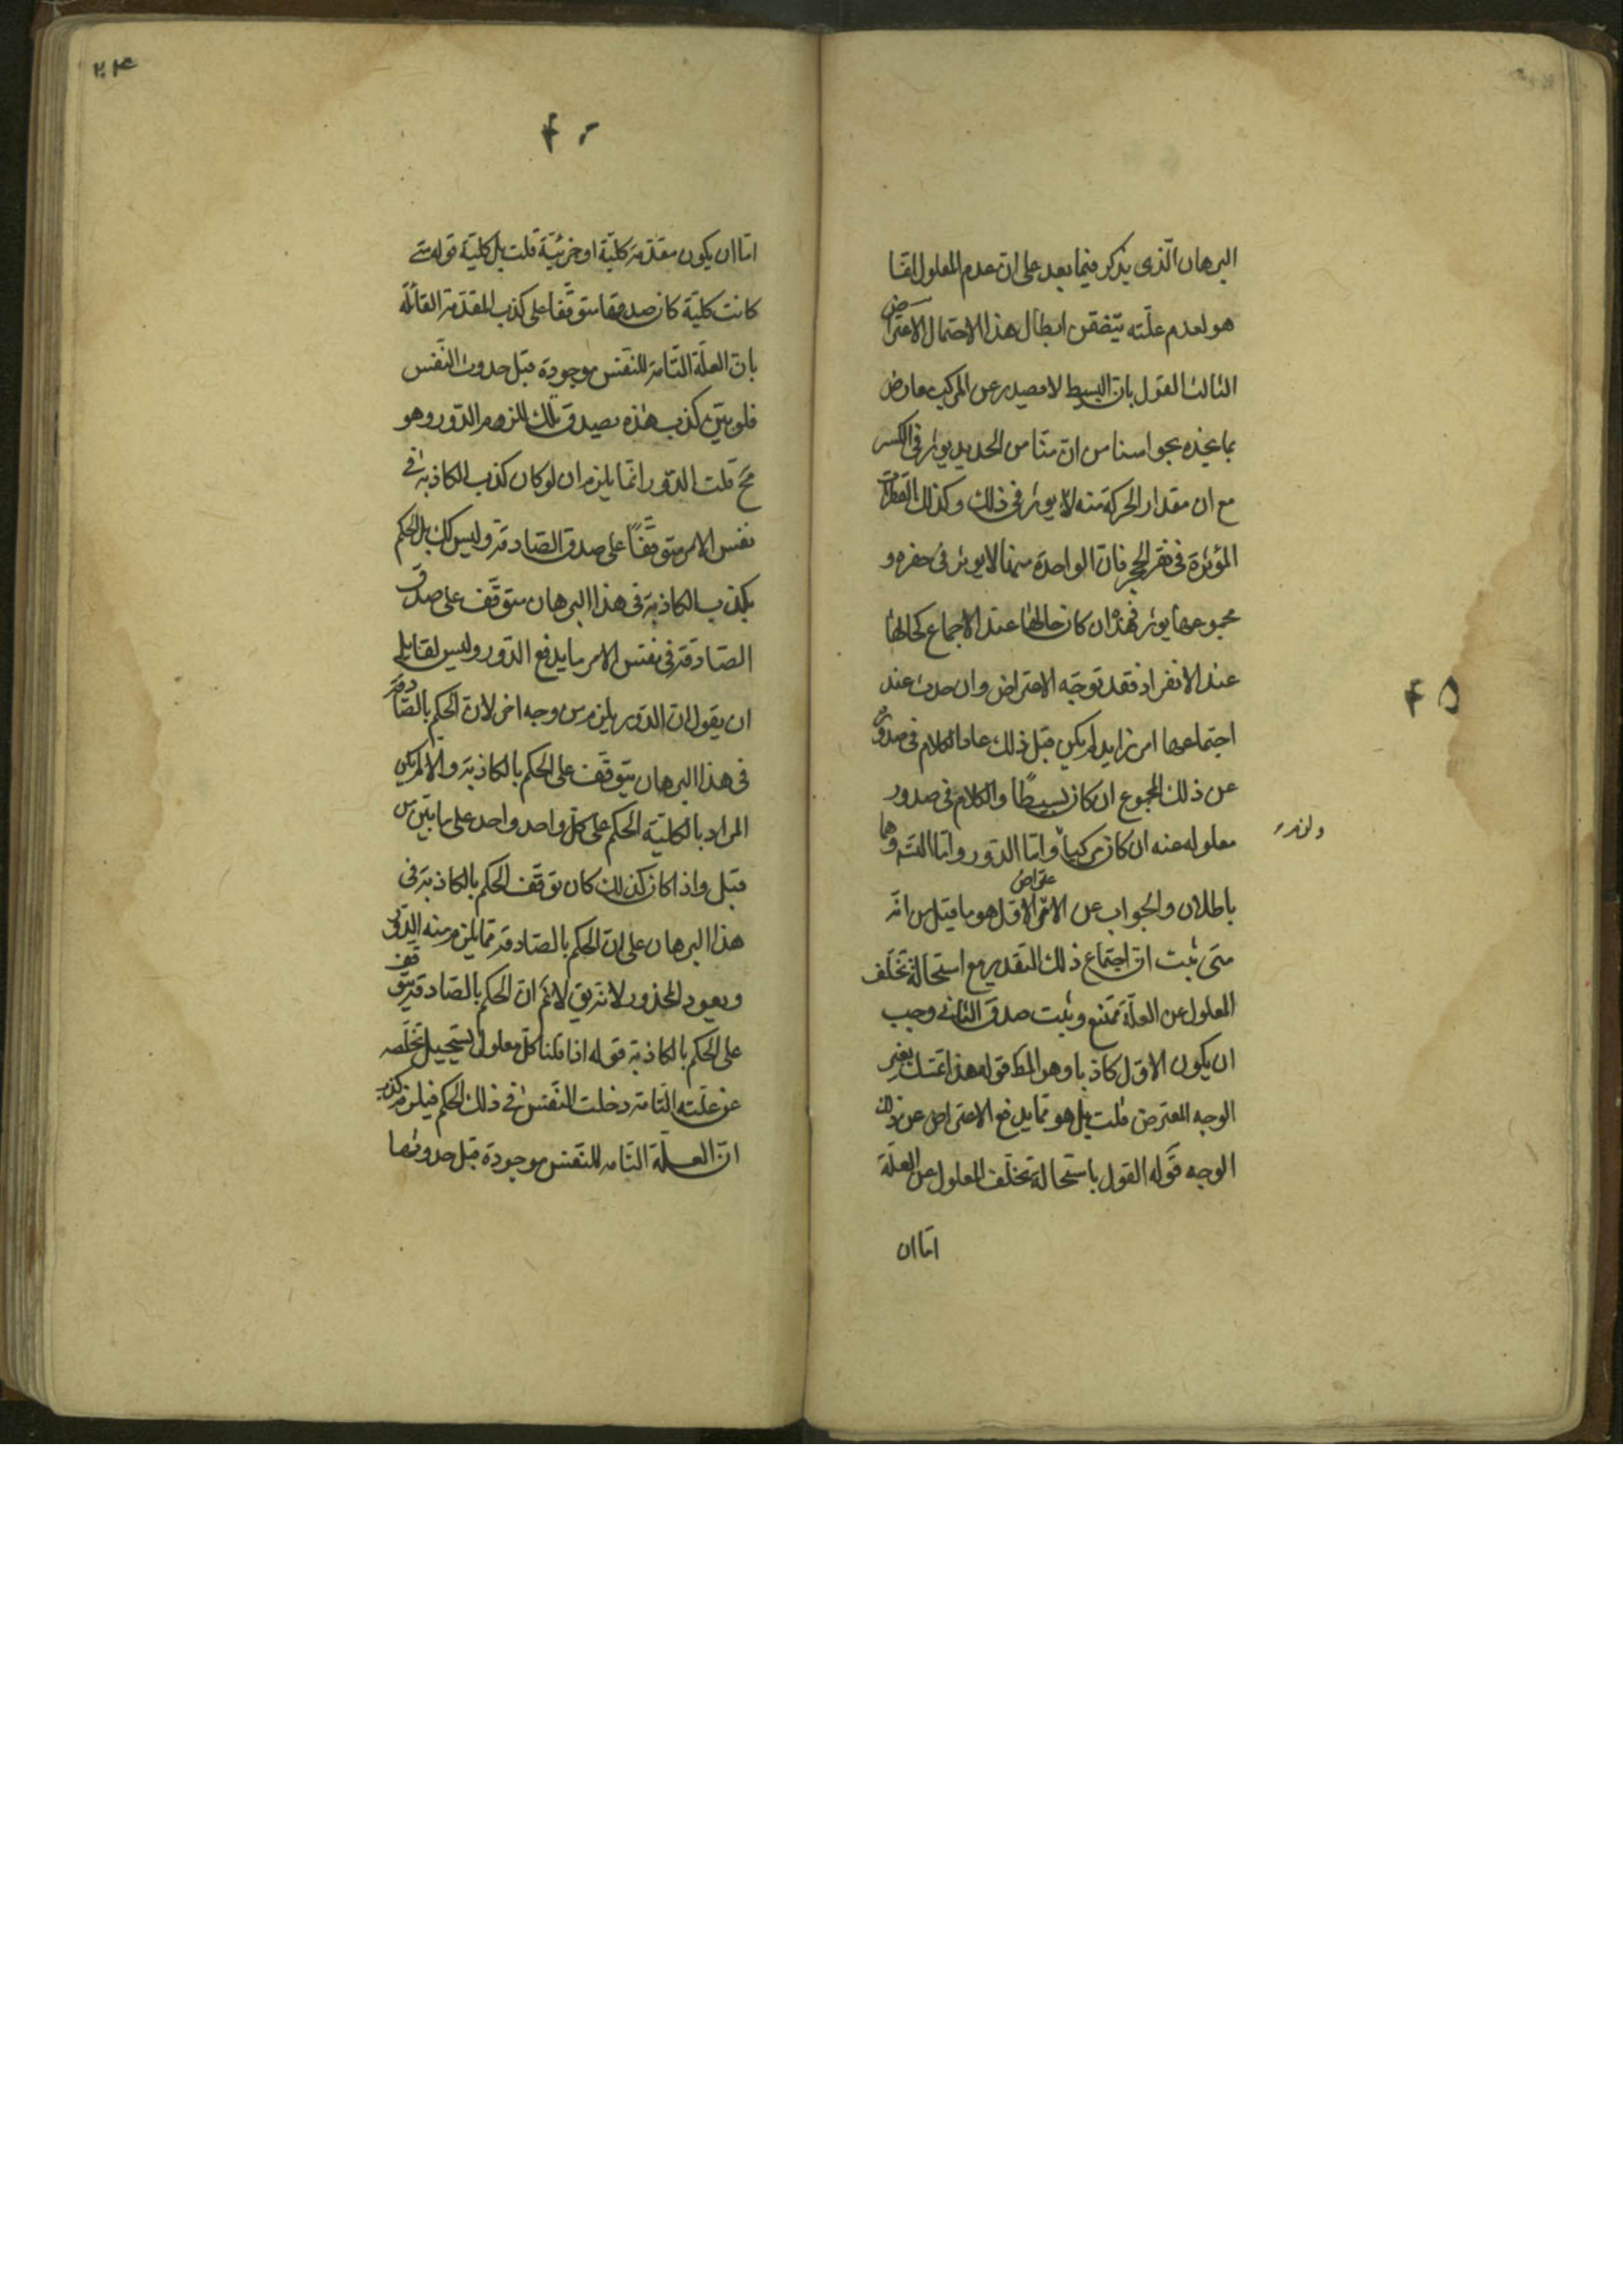 البرهان الّذى يذكر فيما بعد على ان عدم المعلول انما
هو لعدم علّته يتضمن ابطال هذا الاحتمال الاعتراض
الثالث القول بان البسيط لا يصدر عن المركب معارض
بما نجده بحواسنا من ان منّا من الحديد يوثر فى الكسر
مع ان مقدار الحركة منه لا يوثر فى ذلك وكذلك القطرات
المؤثرة فى نقر الحجر فان الواحدة منها لا يوثر فى حفره و
مجموعها يوثر فهذه ان كان حالها عند الاجماع كحالها
عند الانفراد فقد توجّه الاعتراض وان حدث عند
۴۵
اجتماعها امر زايد لم يكن قبل ذلك عاد الكلام فى صدوره
عن ذلك المجموع ان كان بسيطًا والكلام فى صدور
معلوله عنه ان كان مركبا واما الدّور واما التسـ وهما
باطلان والجواب عن الاعتراض الاول هو ما قيل من انّه
متى ثبت ان اجتماع ذلك التقدير مع استحالة تخلّف
المعلول عن العلّة ممتنع وثبت صدق الثانى وجب
ان يكون الاول كاذبا وهو المط قوله هذا تمسّك بغير
الوجه المعترض قلت بل هو ممّا يدفع الاعتراض عن ذلك
الوجه قوله القول باستحالة تخلّف المعلول عن العلّة
امّا ان
۲۰۴
۴۰
امّا ان يكون مقدّمة كليّة او جزئيّة قلت بل كليّة قوله متى
كانت كليّة كان صدقها متوقّفا على كذب المقدّمة القائلة
بان العلّة التّامة للنّفس موجودة قبل حدوث النّفس
فلو بيّن كذب هذه بصدق تلك لزم الدّور وهو
مح قلت الدّور انّما يلزم ان لو كان كذب الكاذبة فى
نفس الامر متوقّفًا على صدق الصّادقة وليس كك بل الحكم
بكذب الكاذبة فى هذا البرهان متوقّف على صدق
الصّادقة فى نفس الامر ما يدفع الدّور وليس لقايل
ان يقول ان الدّور يلزم من وجه اخر لان الحكم بالصّادقة
فى هذا البرهان يتوقّف على الحكم بالكاذبة والا لم يكن
المراد بالكليّة الحكم على كلّ واحد واحد على ما بيّن من
قبل واذا كان كذلك كان توقّف الحكم بالكاذبة فى
هذا البرهان على ان الحكم بالصّادقة ممّا يلزم منه الدّور
ويعود المحذور لانّه يق لا نم ان الحكم بالصّادقة يتوقف
على الحكم بالكاذبة قوله اذا قلنا كلّ معلول يستحيل تخلّفه
عن علّته التّامة دخلت النّفس فى ذلك الحكم فيلزم كذب
انّ العلّة التامه للنّفس موجودة قبل حدوثها